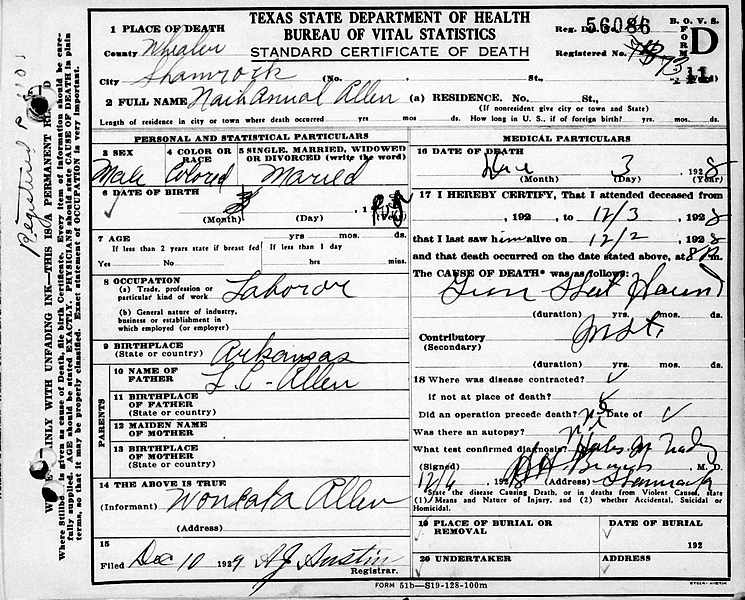 TEXAS STATE DEPARTMENT OF HEALTH
BUREAU OF VITAL STATISTICS
STANDARD CERTIFICATE OF DEATH
Reg. Dis. No. 56086
B. O. V. S.
FORM D
Registered No. 73
11
1 PLACE OF DEATH
County Wheeler
City Shamrock (No. St., Ward)
2 FULL NAME Nathannial Allen (a) RESIDENCE. No. St.,
(If nonresident give city or town and State)
Length of residence in city or town where death occurred yrs. mos. ds. How long in U. S., if of foreign birth? yrs. mos. ds.
PERSONAL AND STATISTICAL PARTICULARS
3 SEX
Male
4 COLOR OR RACE
Colored
5 SINGLE, MARRIED, WIDOWED OR DIVORCED (write the word)
Maried
6 DATE OF BIRTH
(Month) (Day) , 1 (Year)
7 AGE yrs mos. ds.
If less than 2 years state if breast fed If less than 1 day
Yes No hrs mins.
8 OCCUPATION
(a) Trade, profession or particular kind of work Laboror
(b) General nature of industry, business or establishment in which employed (or employer)
9 BIRTHPLACE
(State or country) Arkansas
PARENTS
10 NAME OF FATHER L. C. Allen
11 BIRTHPLACE OF FATHER
(State or country)
12 MAIDEN NAME OF MOTHER
13 BIRTHPLACE OF MOTHER
(State or country)
14 THE ABOVE IS TRUE
(Informant) Allen
(Address)
15
Filed Dec 10 1929 A J Austin
Registrar.
MEDICAL PARTICULARS
16 DATE OF DEATH
Dec 3 1928
(Month) (Day) (Year)
17 I HEREBY CERTIFY, That I attended deceased from
, 192 , to 12/3 , 1928
that I last saw him alive on 12/2 , 1928
and that death occurred on the date stated above, at 8 P m.
The CAUSE OF DEATH* was as follows:
Gun Shot Wound
(duration) yrs. mos. ds.
Contributory Inst.
(Secondary)
(duration) yrs. mos. ds.
18 Where was disease contracted?
if not at place of death?
Did an operation precede death? no Date of
Was there an autopsy? no
What test confirmed diagnosis?
(Signed) M. D.
192 (Address) Shamrock
*State the disease Causing Death, or in deaths from Violent Causes, state (1) Means and Nature of Injury, and (2) whether Accidental, Suicidal or Homicidal.
19 PLACE OF BURIAL OR REMOVAL
DATE OF BURIAL
192
20 UNDERTAKER
ADDRESS
FORM 51b—S19-128-100m
Registered
INLY WITH UNFADING INK—THIS IS A PERMANENT
is given as cause of Death, file birth Certificate. Every item of information should be care-
fully supplied. AGE should be stated EXACTLY. PHYSICIANS should state CAUSE OF DEATH in plain
terms, so that it may be properly classified. Exact statement of OCCUPATION is very important.